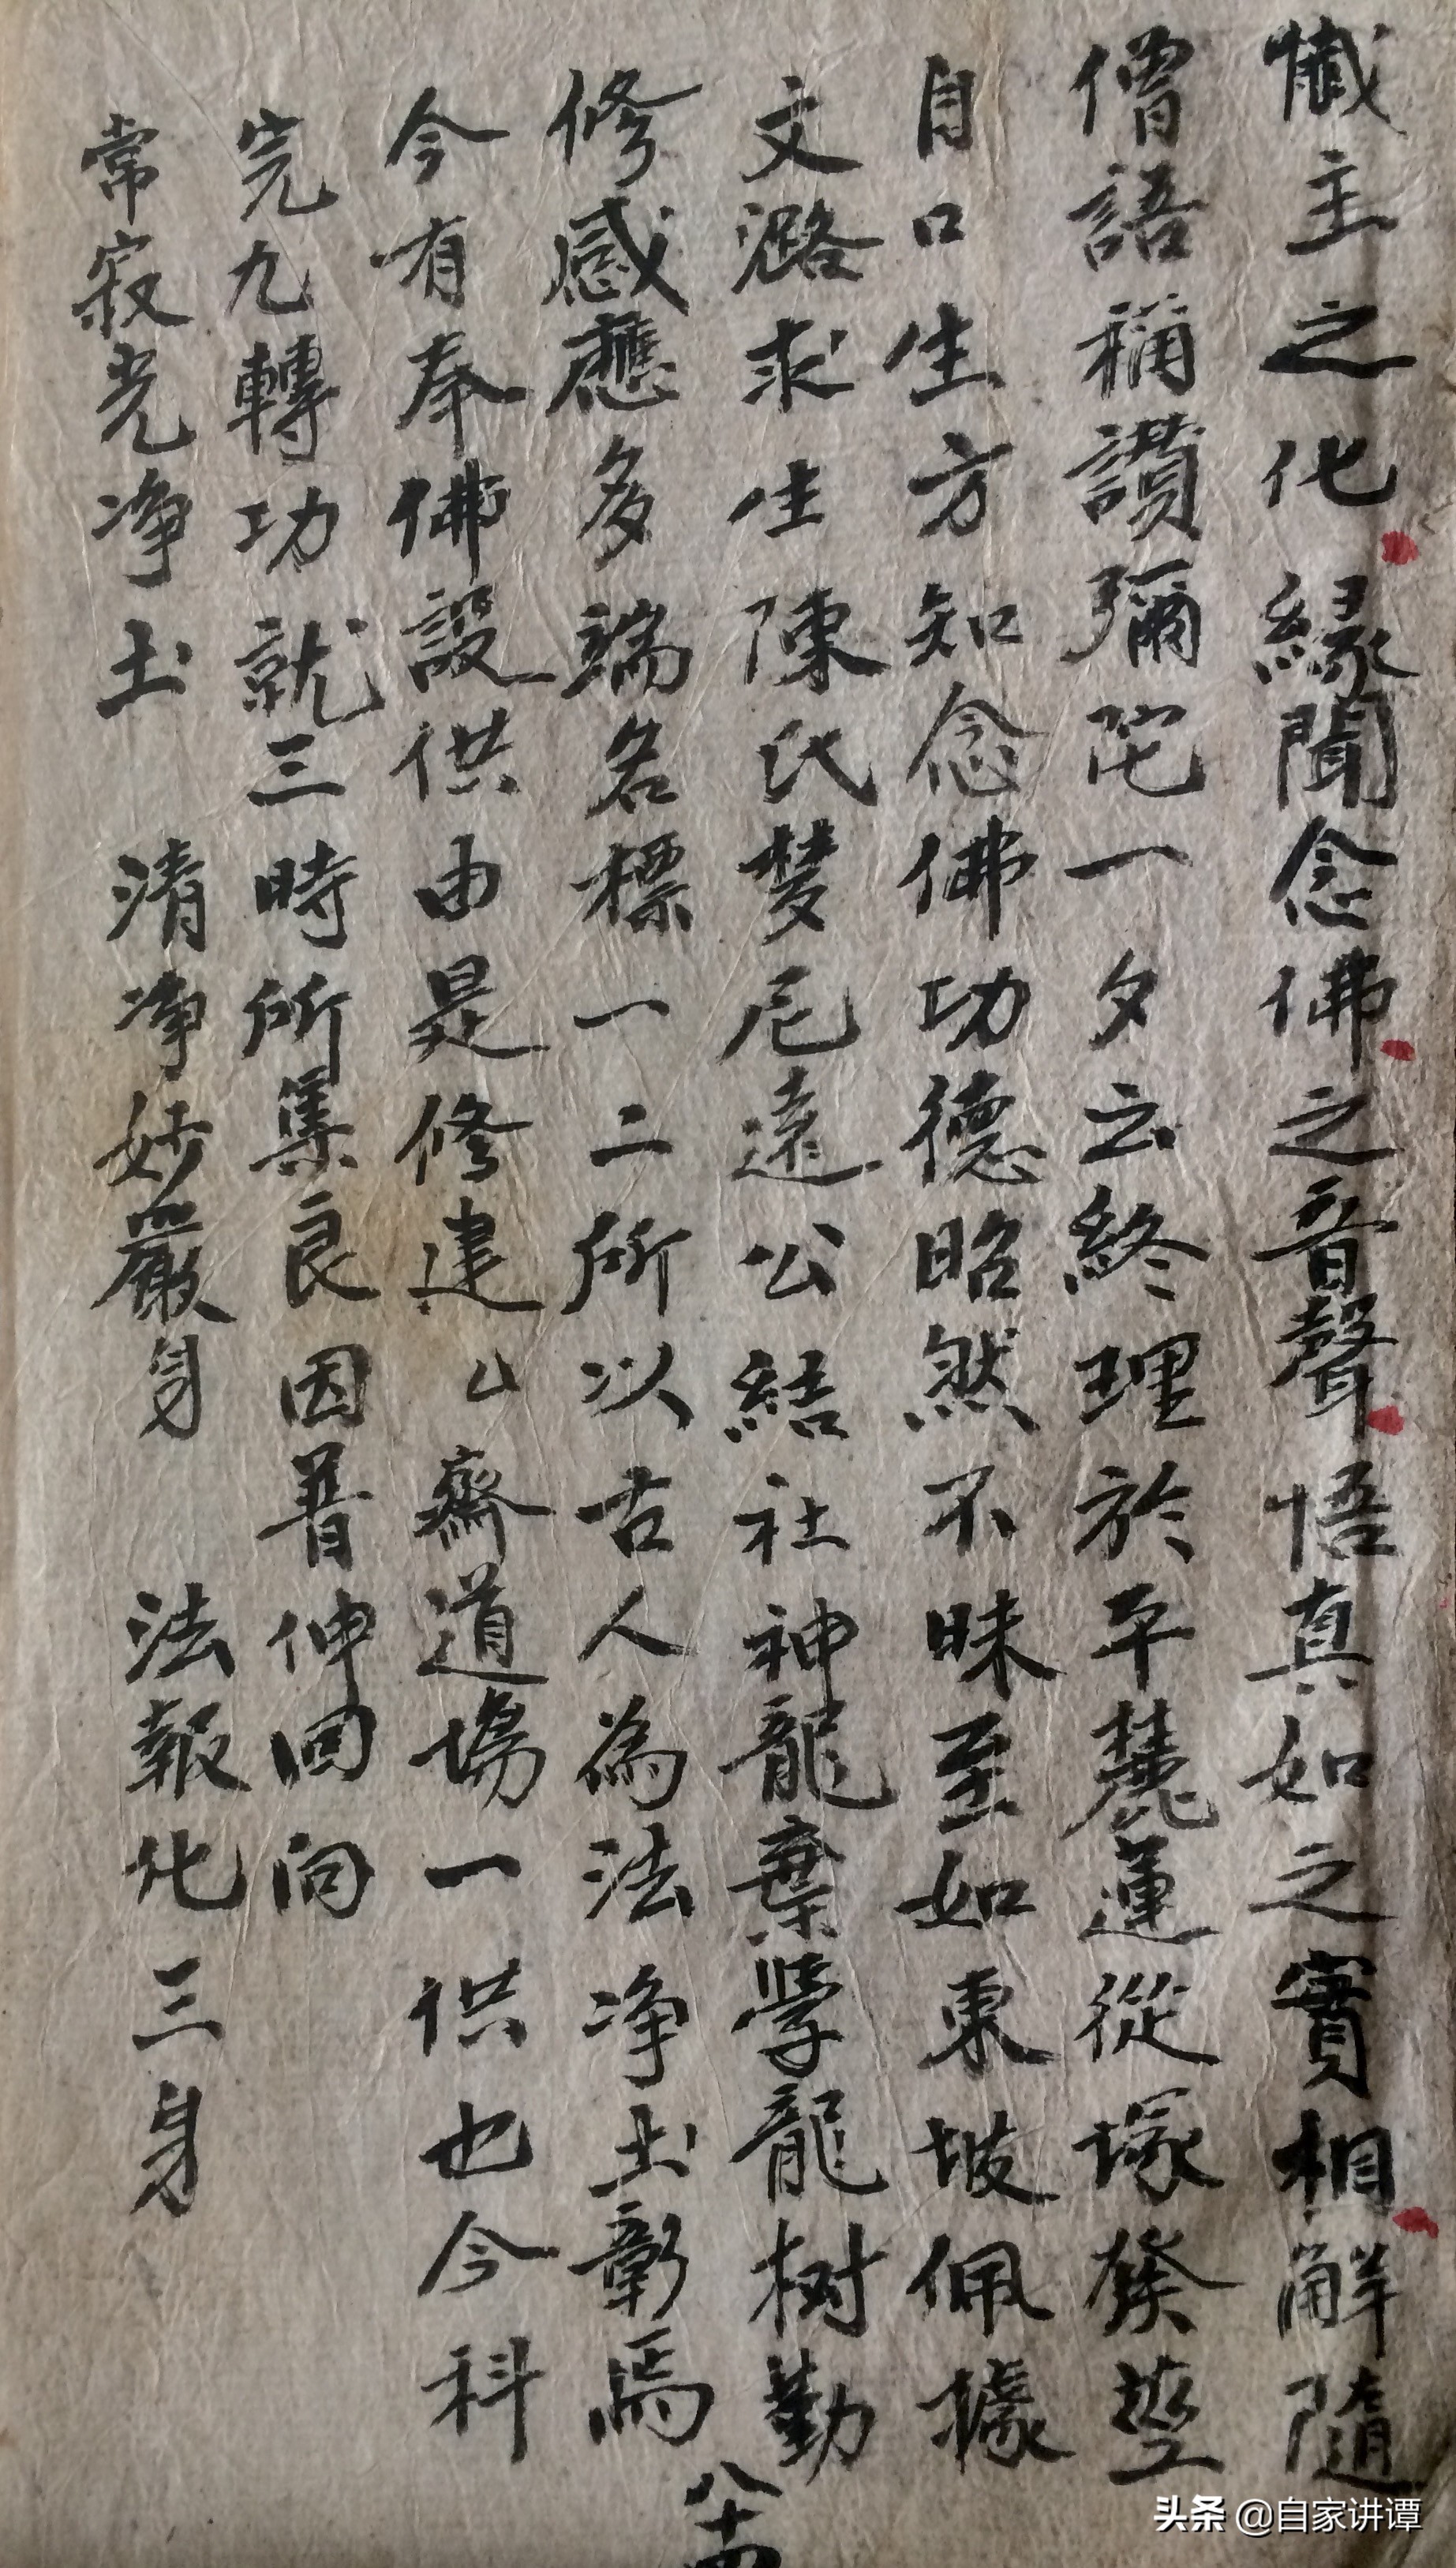 懺主之化緣聞念佛之音聲悟真如之實相解隨
僧語稱讚彌陀一夕云終理於平麓蓮從塚發莖
自口生方知念佛功德昭然不昧至如東坡佩據
文潞求生陳氏夢尼遠公結社神龍棄學龍树勤
修感應多端名標一二所以古人為法净土彰焉
今有奉佛設供由是修建厶齋道場一供也今科
完九轉功就三時所集良因普伸回向
常寂光净土 清净妙嚴身 法報化三身
八十四
头条 @自家讲谭